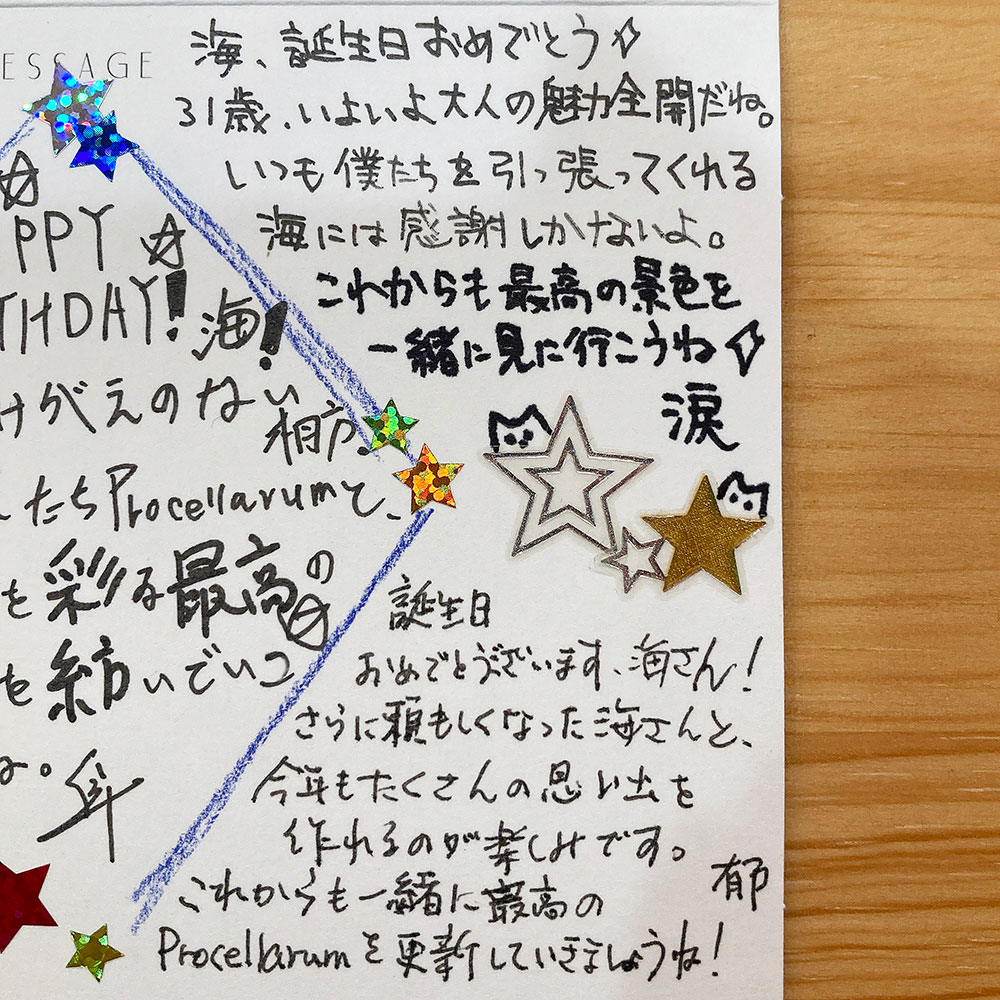 ESSAGE
海、誕生日おめでとう
31歳、いよいよ大人の魅力全開だね。
いつも僕たちを引っ張ってくれる
海には感謝しかないよ。
これからも最高の景色を
一緒に見に行こうね
涙
PPY
THDAY! 海!
けがえのない
相方。
たちProcellarumと、
を彩る最高の
を紡いでいこ
な。
誕生日
おめでとうございます、海さん!
さらに頼もしくなった海さんと、
今年もたくさんの思い出を
作れるのが楽しみです。
これからも一緒に最高の
Procellarumを更新していきましょうね!
郁